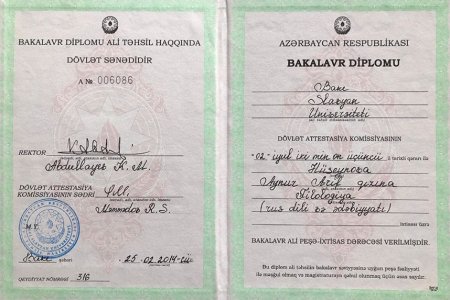 BAKALAVR DİPLOMU ALİ TƏHSİL HAQQINDA
DÖVLƏT SƏNƏDİDİR
A № 006086
REKTOR
Abdullayev K. M.
DÖVLƏT ATTESTASİYA
KOMİSSİYASININ SƏDRİ
Məmmədov R. S.
M.Y.
25.02.2014-cü
QEYDİYYAT NÖMRƏSİ 316
AZƏRBAYCAN RESPUBLİKASI
BAKALAVR DİPLOMU
Bakı
Slavyan
Universiteti
DÖVLƏT ATTESTASİYA KOMİSSİYASININ
"02" iyul iki min on üçüncü il tarixli qərarı ilə
Hüseynova
Aynur Arif qızına
Filologiya
(rus dili və ədəbiyyatı)
ixtisası üzrə
BAKALAVR ALİ PEŞƏ-İXTİSAS DƏRƏCƏSİ VERİLMİŞDİR.
Bu diplom ali təhsilin bakalavr səviyyəsinə uyğun peşə fəaliyyəti
ilə məşğul olmaq və magistraturaya qəbul olunmaq üçün əsas sayılır.